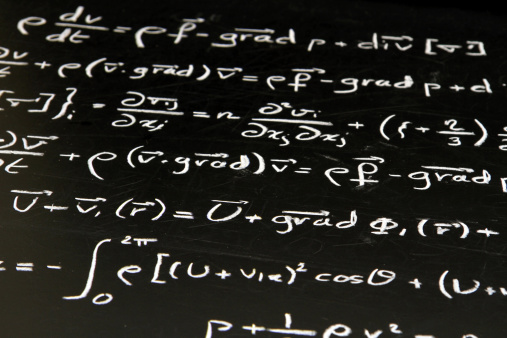 ρ dv⃗/dt = ρ f⃗ - grad⃗ p + div⃗ [σ⃗']
∂v⃗ + ρ (v⃗·grad⃗) v⃗ = ρ f⃗ - grad p + d
[σ⃗']}ᵢ = ∂σᵢⱼ/∂xⱼ = n ∂²vᵢ/∂xⱼ∂xⱼ + (ζ + 2/3)
∂v⃗/∂t + ρ (v⃗·grad⃗) v⃗ = ρ f⃗ - grad⃗
U⃗ + v⃗₁ (r⃗) = U⃗ + grad⃗ Φ₁ (r⃗) +
= - ∫₀^2π ρ [(U + v₁ₓ)² cosθ + (U +
p + 1/ ρ v² =